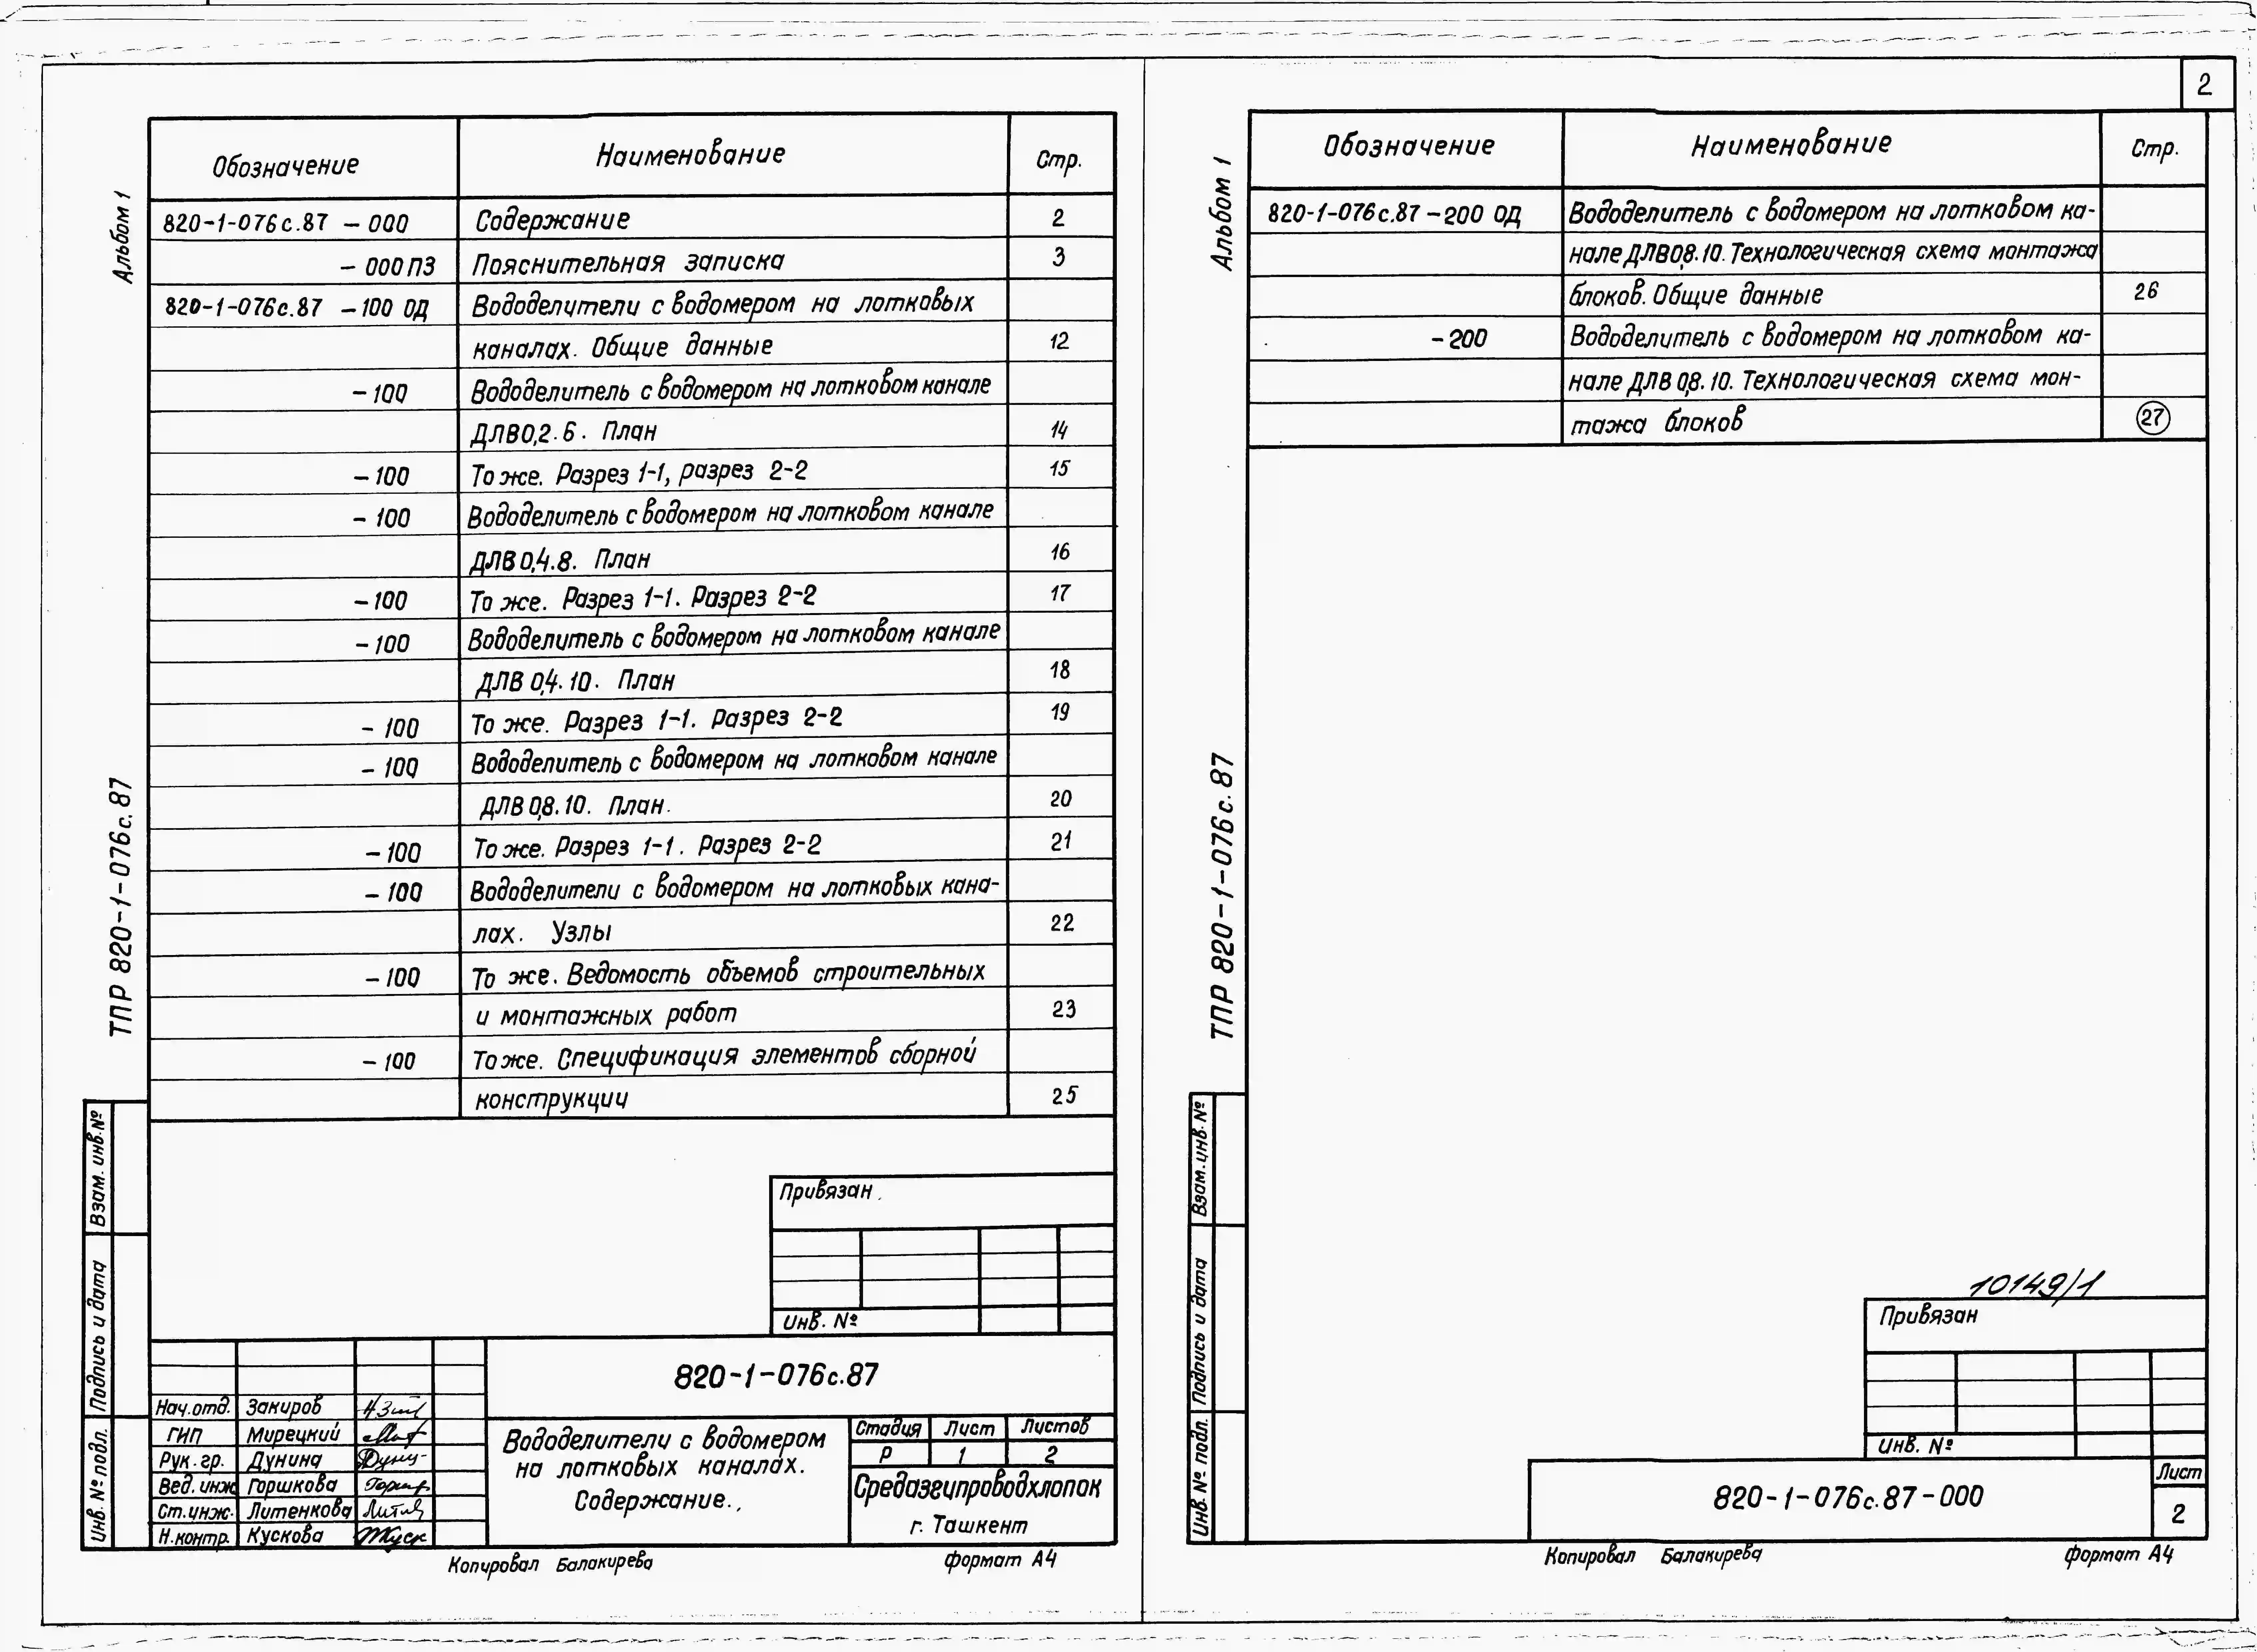 2
Альбом 1
ТПР 820-1-076с.87
Обозначение Наименование Стр.
820-1-076с.87 -000 Содержание 2
-000ПЗ Пояснительная записка 3
820-1-076с.87 -100 ОД Вододелители с водомером на лотковых
каналах. Общие данные 12
-100 Вододелитель с водомером на лотковом канале
ДЛВ0,2.6. План 14
-100 То же. Разрез 1-1, разрез 2-2 15
-100 Вододелитель с водомером на лотковом канале
ДЛВ 0,4.8. План 16
-100 То же. Разрез 1-1. Разрез 2-2 17
-100 Вододелитель с водомером на лотковом канале
ДЛВ 0,4.10. План 18
-100 То же. Разрез 1-1. Разрез 2-2 19
-100 Вододелитель с водомером на лотковом канале
ДЛВ 0,8.10. План. 20
-100 То же. Разрез 1-1. Разрез 2-2 21
-100 Вододелители с водомером на лотковых кана-
лах. Узлы 22
-100 То же. Ведомость объемов строительных
и монтажных работ 23
-100 То же. Спецификация элементов сборной
конструкции 25
Взам. инв. №
Подпись и дата
Инв. № подл.
Привязан
Инв. №
820-1-076с.87
Нач.отд. Закиров
ГИП Мирецкий
Рук.гр. Дунина
Вед. инж Горшкова
Ст.инж. Литенкова
Н.контр. Кускова
Вододелители с водомером
на лотковых каналах.
Содержание.
Стадия Лист Листов
Р 1 2
Средазгипроводхлопок
г. Ташкент
Копировал Балакирева формат А4
Альбом 1
ТПР 820-1-076с.87
Обозначение Наименование Стр.
820-1-076с.87 -200 ОД Вододелитель с водомером на лотковом ка-
нале ДЛВ0,8.10. Технологическая схема монтажа
блоков. Общие данные 26
-200 Вододелитель с водомером на лотковом ка-
нале ДЛВ 0,8.10. Технологическая схема мон-
тажа блоков 27
Взам. инв. №
Подпись и дата
Инв. № подл.
10149/1
Привязан
Инв. №
820-1-076с.87-000
Лист
2
Копировал Балакирева формат А4